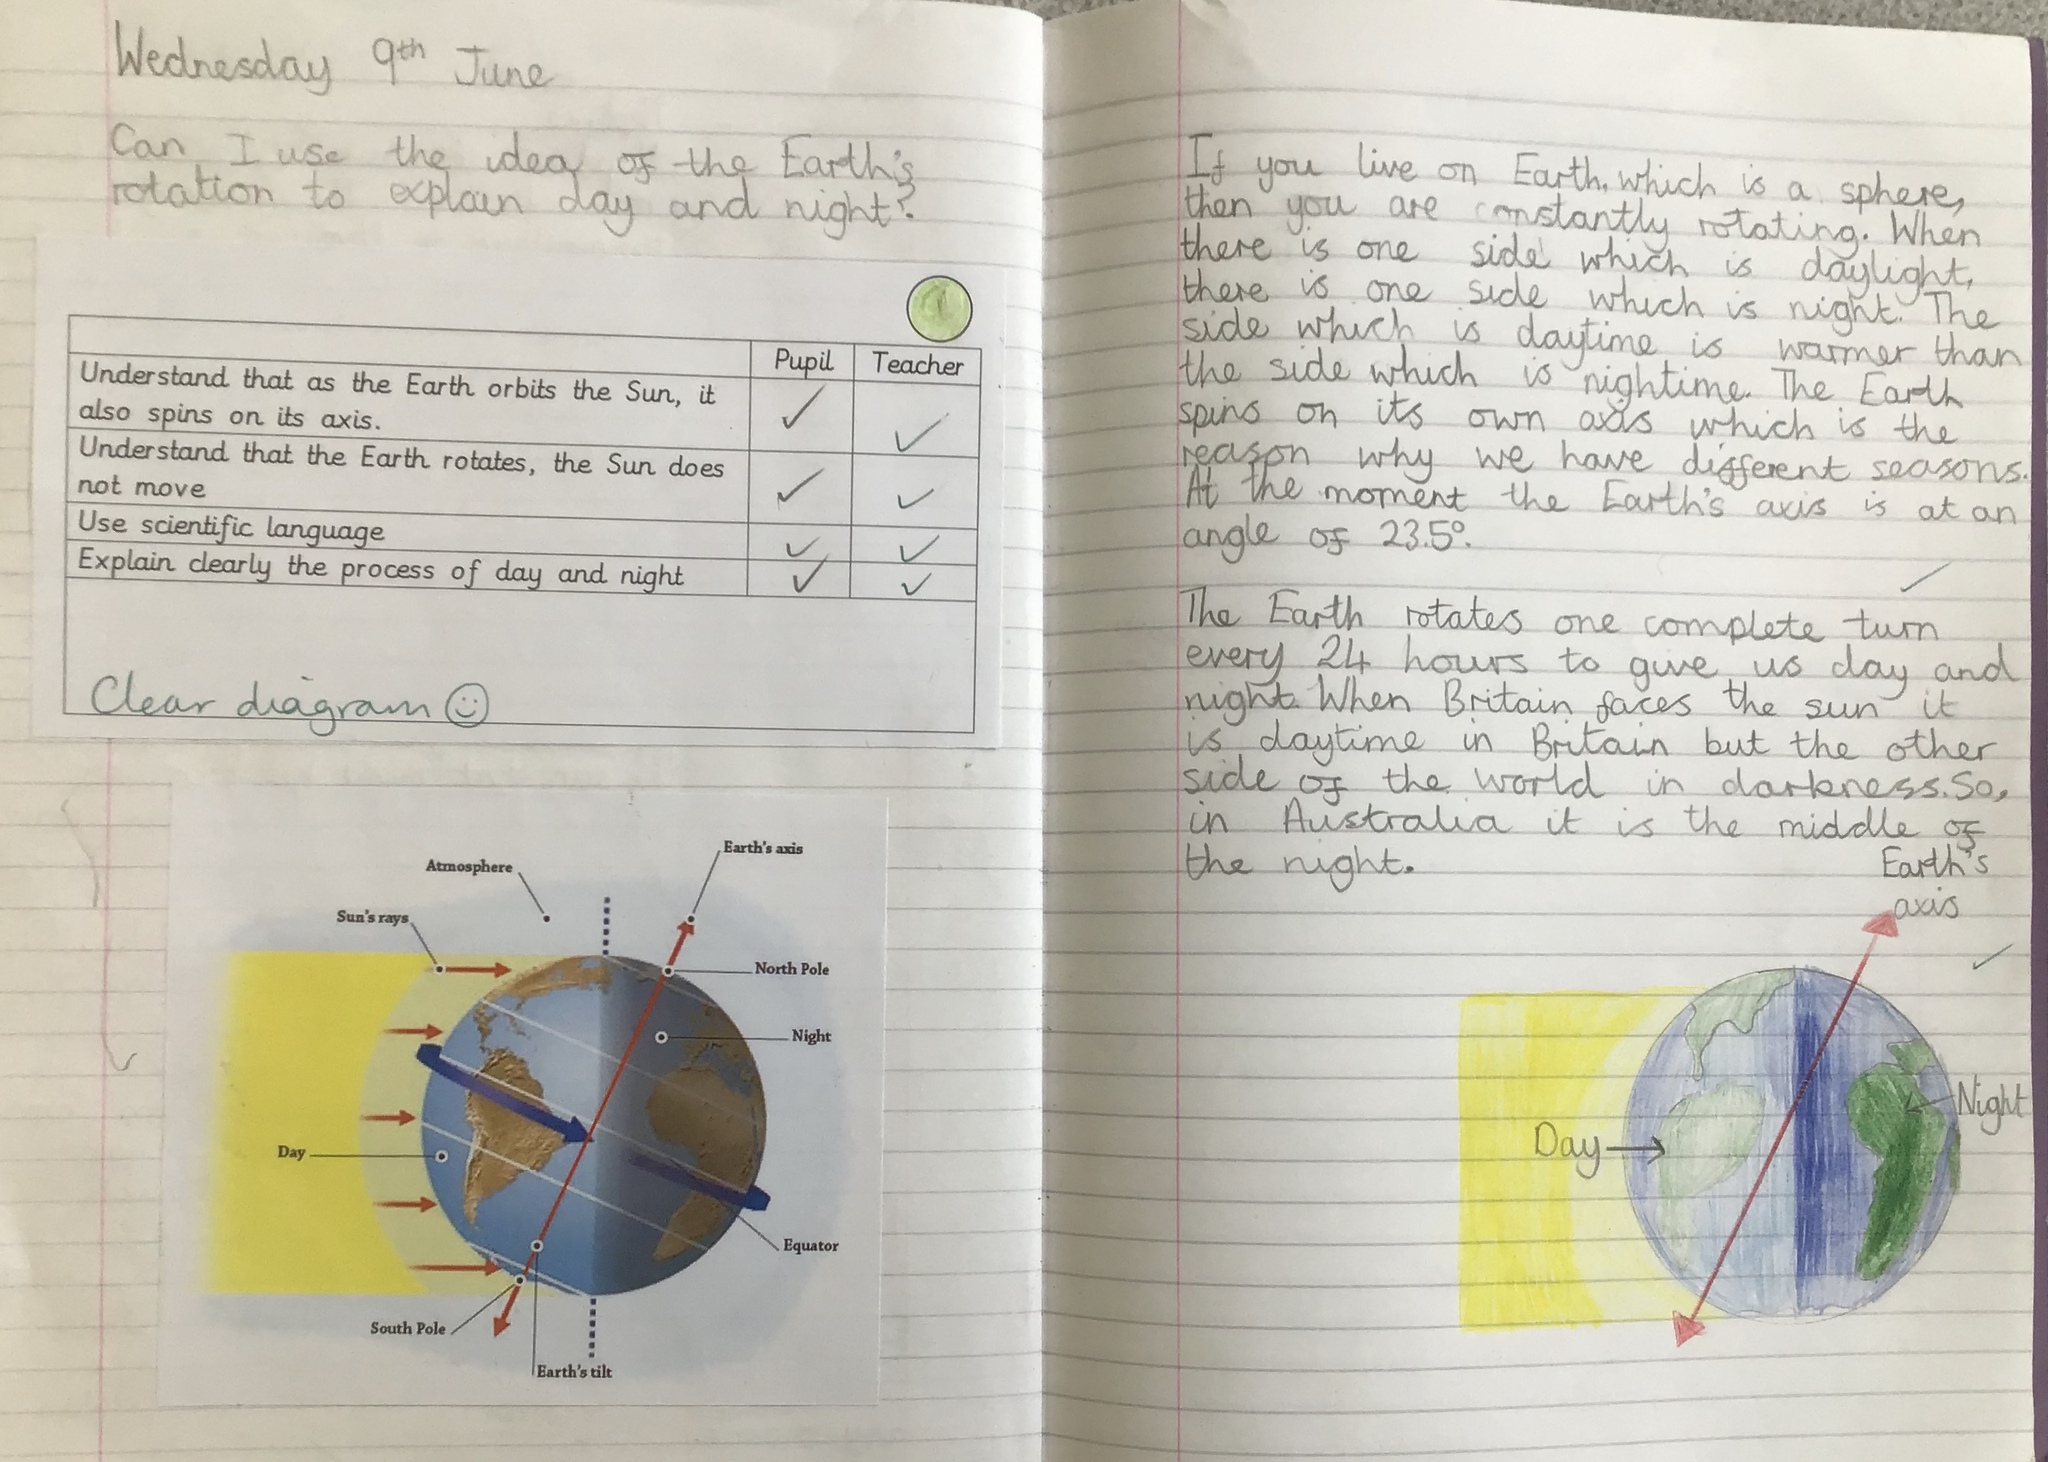 Wednesday 9th June
Can I use the idea of the Earth's
rotation to explain day and night?
Pupil Teacher
Understand that as the Earth orbits the Sun, it
also spins on its axis.
Understand that the Earth rotates, the Sun does
not move
Use scientific language
Explain clearly the process of day and night
Clear diagram
Earth's axis
Atmosphere
Sun's rays
North Pole
Night
Day
Equator
South Pole
Earth's tilt
If you live on Earth, which is a sphere,
then you are constantly rotating. When
there is one side which is daylight,
there is one side which is night. The
side which is daytime is warmer than
the side which is nightime. The Earth
spins on its own axis which is the
reason why we have different seasons.
At the moment the Earth's axis is at an
angle of 23.5°.
The Earth rotates one complete turn
every 24 hours to give us day and
night. When Britain faces the sun it
is daytime in Britain but the other
side of the world in darkness. So,
in Australia it is the middle of
the night.
Earth's
axis
Night
Day